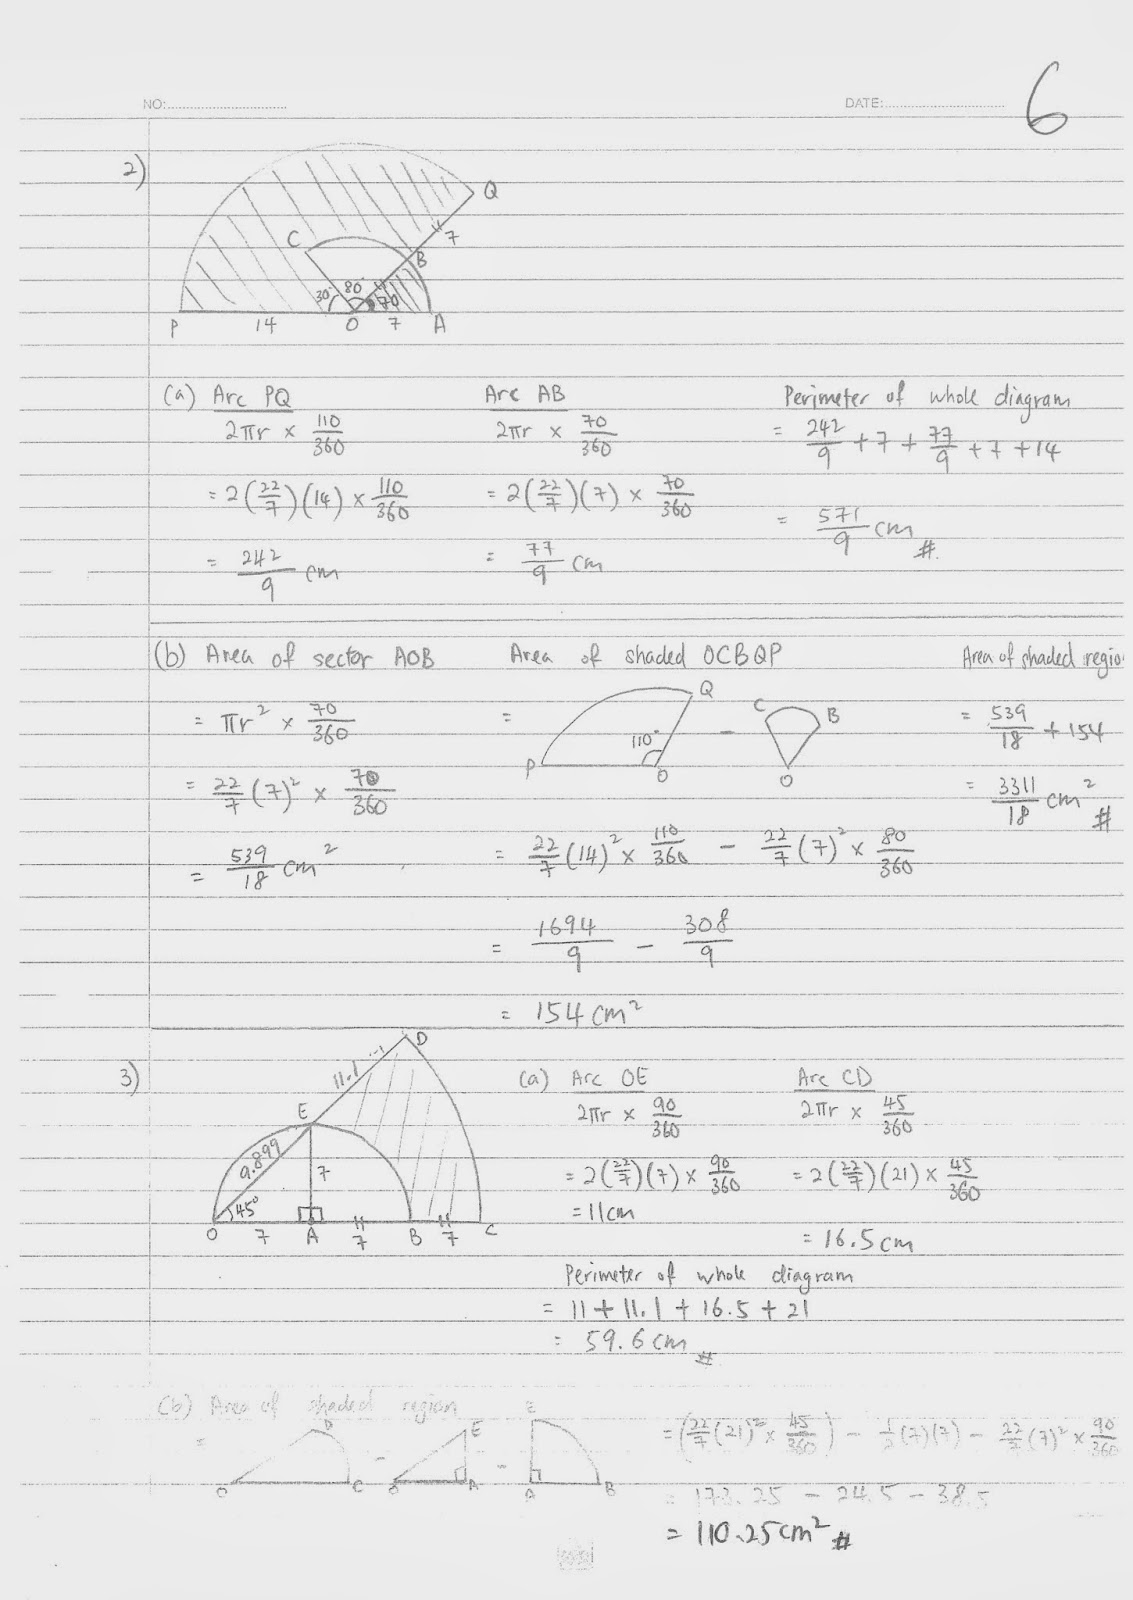 NO:
DATE:
6
2)
Q
C
7
B
30° 80° 70
P 14 O 7 A
(a) Arc PQ
2πr × 110/360
= 2(22/7)(14) × 110/360
= 242/9 cm
Arc AB
2πr × 70/360
= 2(22/7)(7) × 70/360
= 77/9 cm
Perimeter of whole diagram
= 242/9 + 7 + 77/9 + 7 + 14
= 571/9 cm #
(b) Area of sector AOB
= πr² × 70/360
= 22/7 (7)² × 70/360
= 539/18 cm²
Area of shaded OCBQP
= P 110° O Q − C B O
= 22/7 (14)² × 110/360 − 22/7 (7)² × 80/360
= 1694/9 − 308/9
= 154 cm²
Area of shaded regio
= 539/18 + 154
= 3311/18 cm² #
3)
D
11.1
E
9.899
7
45°
O 7 A 7 B 7 C
(a) Arc OE
2πr × 90/360
= 2(22/7)(7) × 90/360
= 11cm
Arc CD
2πr × 45/360
= 2(22/7)(21) × 45/360
= 16.5cm
Perimeter of whole diagram
= 11 + 11.1 + 16.5 + 21
= 59.6cm #
(b) Area of shaded region
= O D C − O E A − E A B
= (22/7 (21)² × 45/360) − 1/2 (7)(7) − 22/7 (7)² × 90/360
= 173.25 − 24.5 − 38.5
= 110.25cm² #